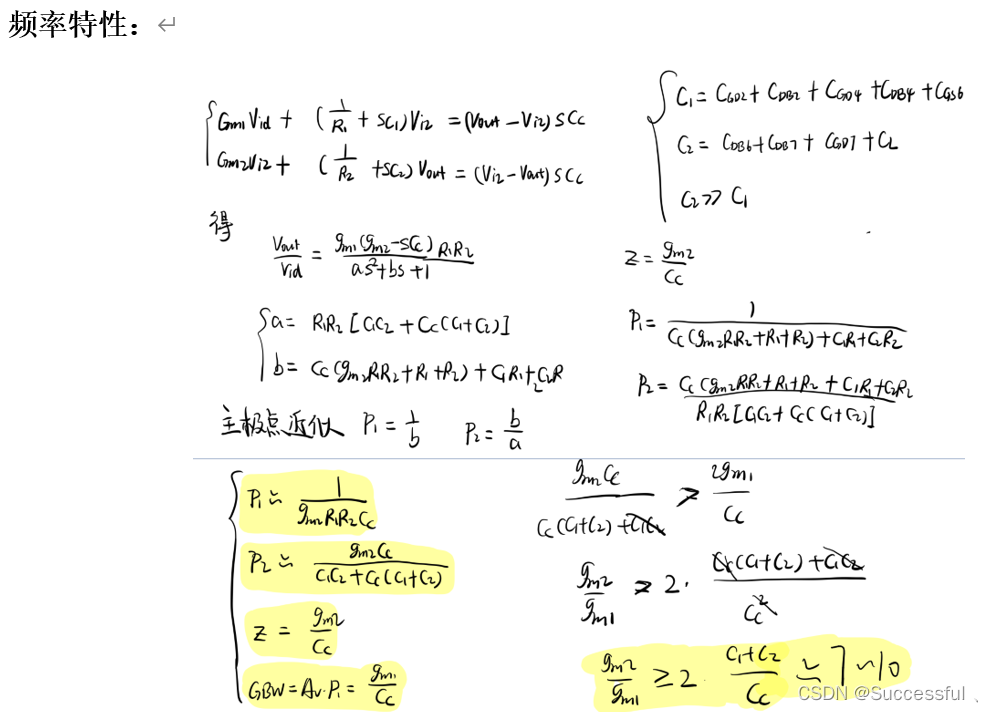 频率特性：
Gm1Vid + (1/R1 + SC1)Vi2 = (Vout - Vi2)SCc
Gm2Vi2 + (1/R2 + SC2)Vout = (Vi2 - Vout)SCc
C1 = CGD2 + CDB2 + CGD4 + CDB4 + CGS6
C2 = CDB6 + CDB7 + CGD7 + CL
C2 >> C1
得
Vout/Vid = gm1(gm2-SCc)R1R2 / as²+bs+1
Z = gm2/Cc
a = R1R2[C1C2 + Cc(C1+C2)]
b = Cc(gm2R1R2+R1+R2) + C1R1+C2R
P1 = 1 / Cc(gm2R1R2+R1+R2)+C1R1+C2R2
P2 = Cc(gm2R1R2+R1+R2 + C1R1+C2R2 / R1R2[C1C2 + Cc(C1+C2)]
主极点近似 P1 = 1/b P2 = b/a
P1 ≃ 1 / gm2R1R2Cc
P2 ≃ gm2Cc / C1C2+Cc(C1+C2)
Z = gm2/Cc
GBW = Av·P1 = gm1/Cc
gm2Cc / Cc(C1+C2)+C1C2 > 2gm1/Cc
gm2/gm1 > 2· Cc(C1+C2)+C1C2 / Cc²
gm2/gm1 ≥ 2· C1+C2/Cc ≃ 7~10
CSDN @Successful 、